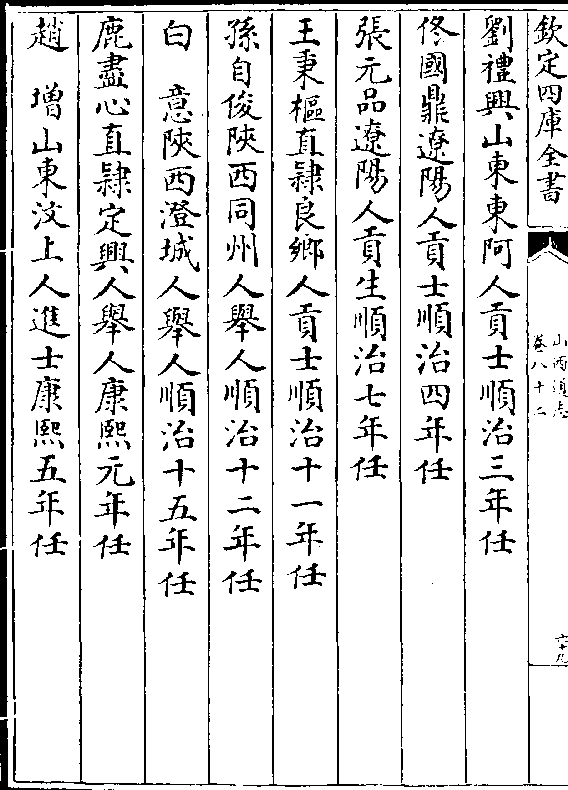 欽定四庫全書
山西通志
卷八十二
六十九
劉禮興山東東阿人貢士順治三年任
佟國鼎遼陽人貢士順治四年任
張元品遼陽人貢生順治七年任
王秉樞直隸良鄉人貢士順治十一年任
孫自俊陝西同州人舉人順治十二年任
白 意陝西澄城人舉人順治十五年任
鹿盡心直隸定興人舉人康熙元年任
趙 增山東汶上人進士康熙五年任